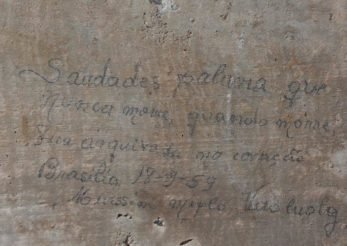 Saudades palavra que
nunca morre, quando morre,
fica arquivada no coração
Brasília 18-9-59